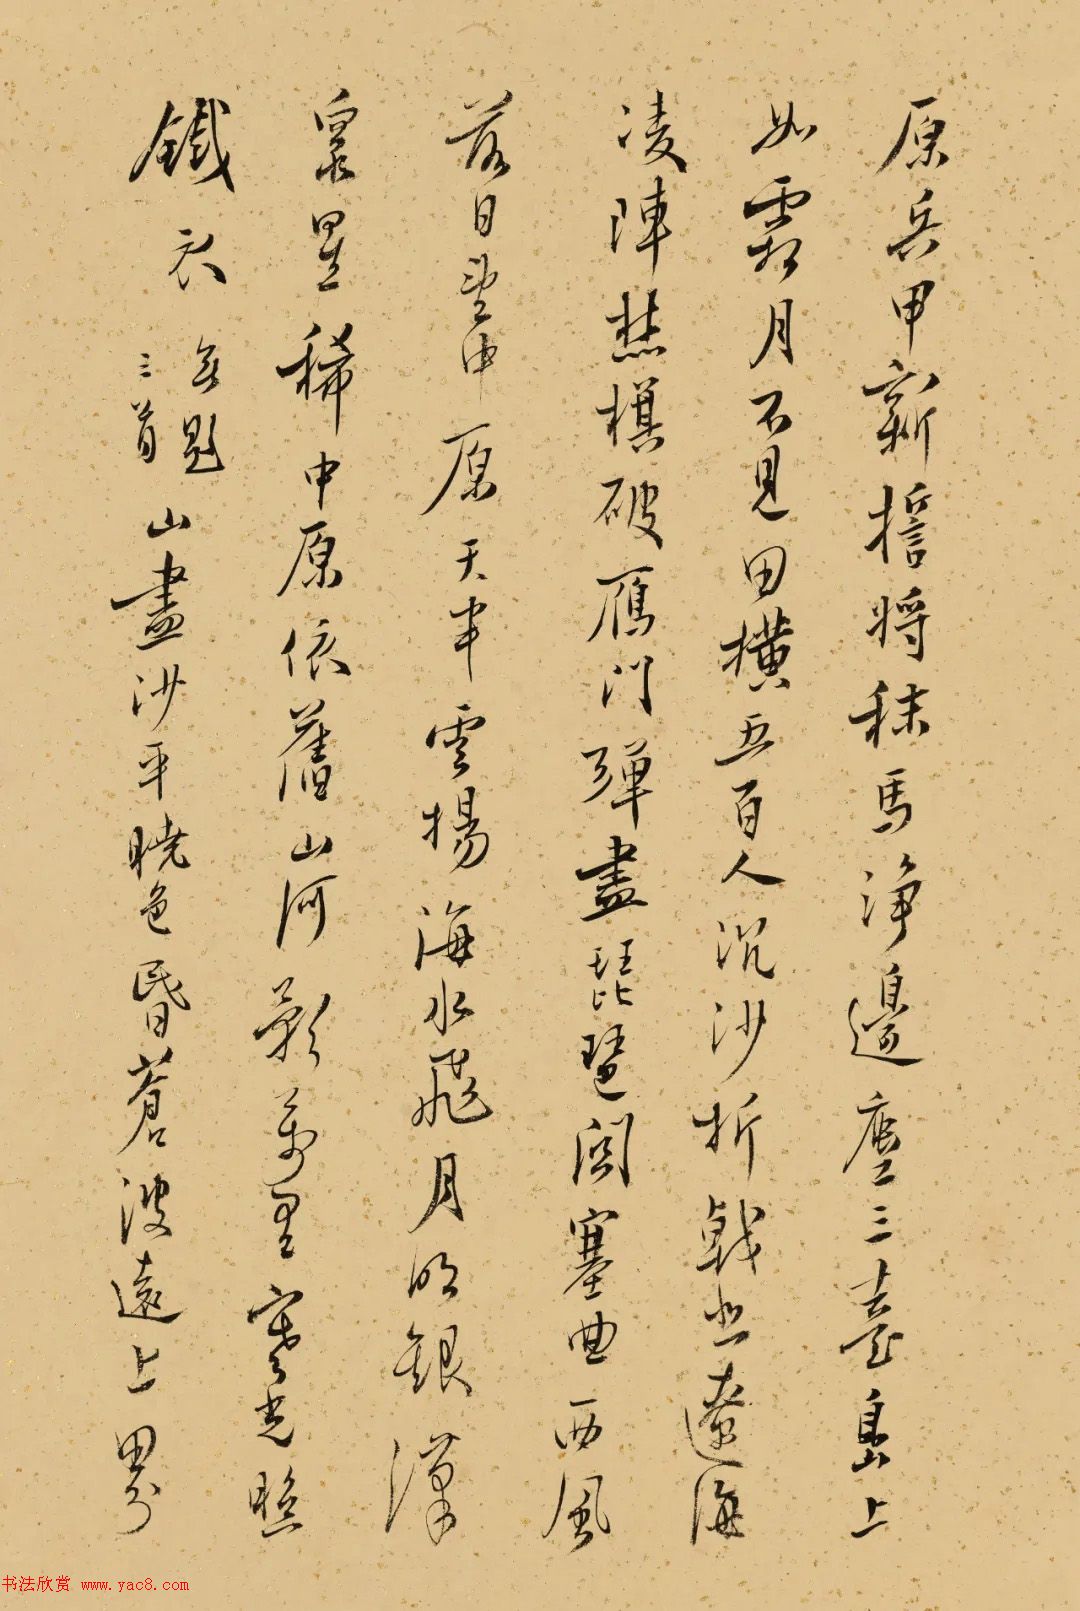 原兵甲新擐將秣馬淨邊塵三臺島上
如霜月不見田橫五百人沉沙折戟出遼海
凌陣燕棋破雁門彈盡琵琶關塞曲西風
落日望中原天半雲揚海水飛月明銀漢
眾星稀中原依舊山河影萬里寒光照
鐵衣 無題三首 山盡沙平曉色昏蒼波遠上界
书法欣赏 www.yac8.com